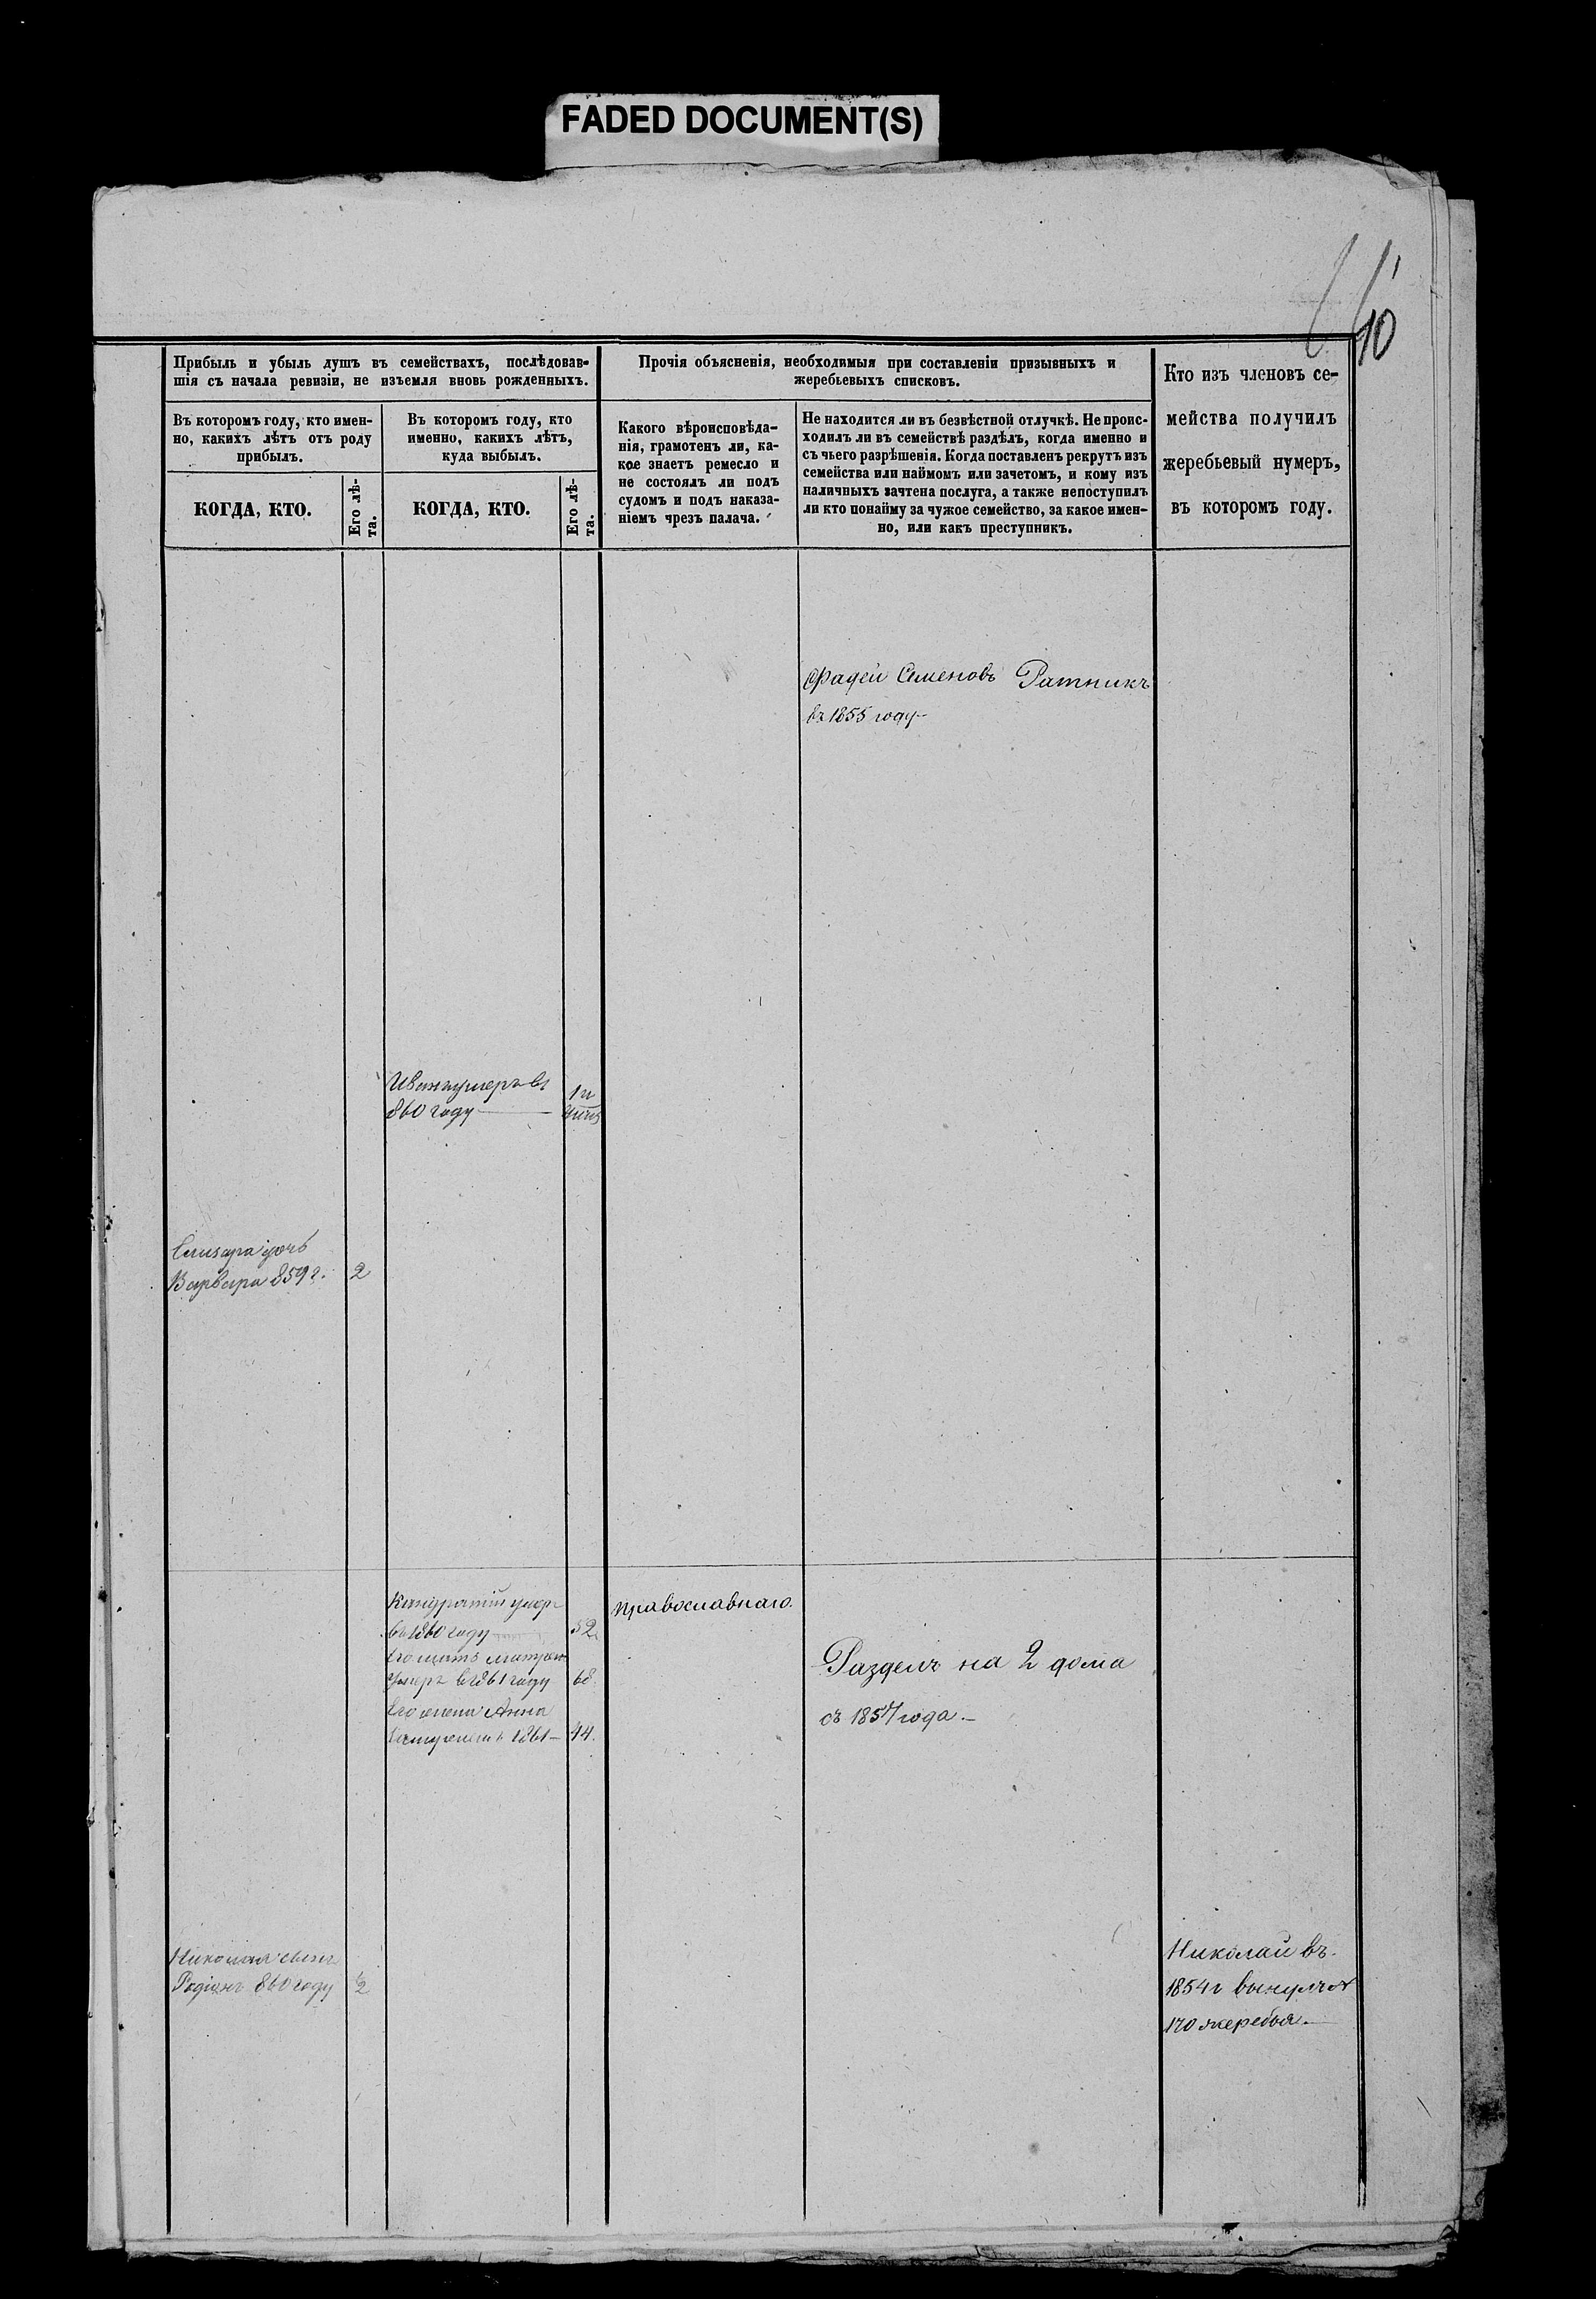 FADED DOCUMENT(S)
10
Прибыль и убыль душъ въ семействахъ, послѣдовав-
шія съ начала ревизіи, не изъемля вновь рожденныхъ.
Въ которомъ году, кто имен-
но, какихъ лѣтъ отъ роду
прибылъ.
КОГДА, КТО.
Его лѣ-
та.
Въ которомъ году, кто
именно, какихъ лѣтъ,
куда выбылъ.
КОГДА, КТО.
Его лѣ-
та.
Прочія объясненія, необходимыя при составленіи призывныхъ и
жеребьевыхъ списковъ.
Какого вѣроисповѣда-
нія, грамотенъ ли, ка-
кое знаетъ ремесло и
не состоялъ ли подъ
судомъ и подъ наказа-
ніемъ чрезъ палача.
Не находится ли въ безвѣстной отлучкѣ. Не проис-
ходилъ ли въ семействѣ раздѣлъ, когда именно и
съ чьего разрѣшенія. Когда поставленъ рекрутъ изъ
семейства или наймомъ или зачетомъ, и кому изъ
наличныхъ зачтена послуга, а также непоступилъ
ли кто понайму за чужое семейство, за какое имен-
но, или какъ преступникъ.
Кто изъ членовъ се-
мейства получилъ
жеребьевый нумеръ,
въ которомъ году.
Фадей Семеновъ Ратникъ
въ 1855 году
Иванъ умеръ въ
860 году
дочь
Варвара 859 г. 2
умеръ
въ 1860 году 52
его мать
умеръ въ 1861 году 68
его жена Анна
1861 44.
православнаго.
Разделъ на 2 дома
съ 1857 года.
Николая сынъ
Родіонъ 860 году 2
Николай въ
1854 г вынулъ №
170 жеребья.